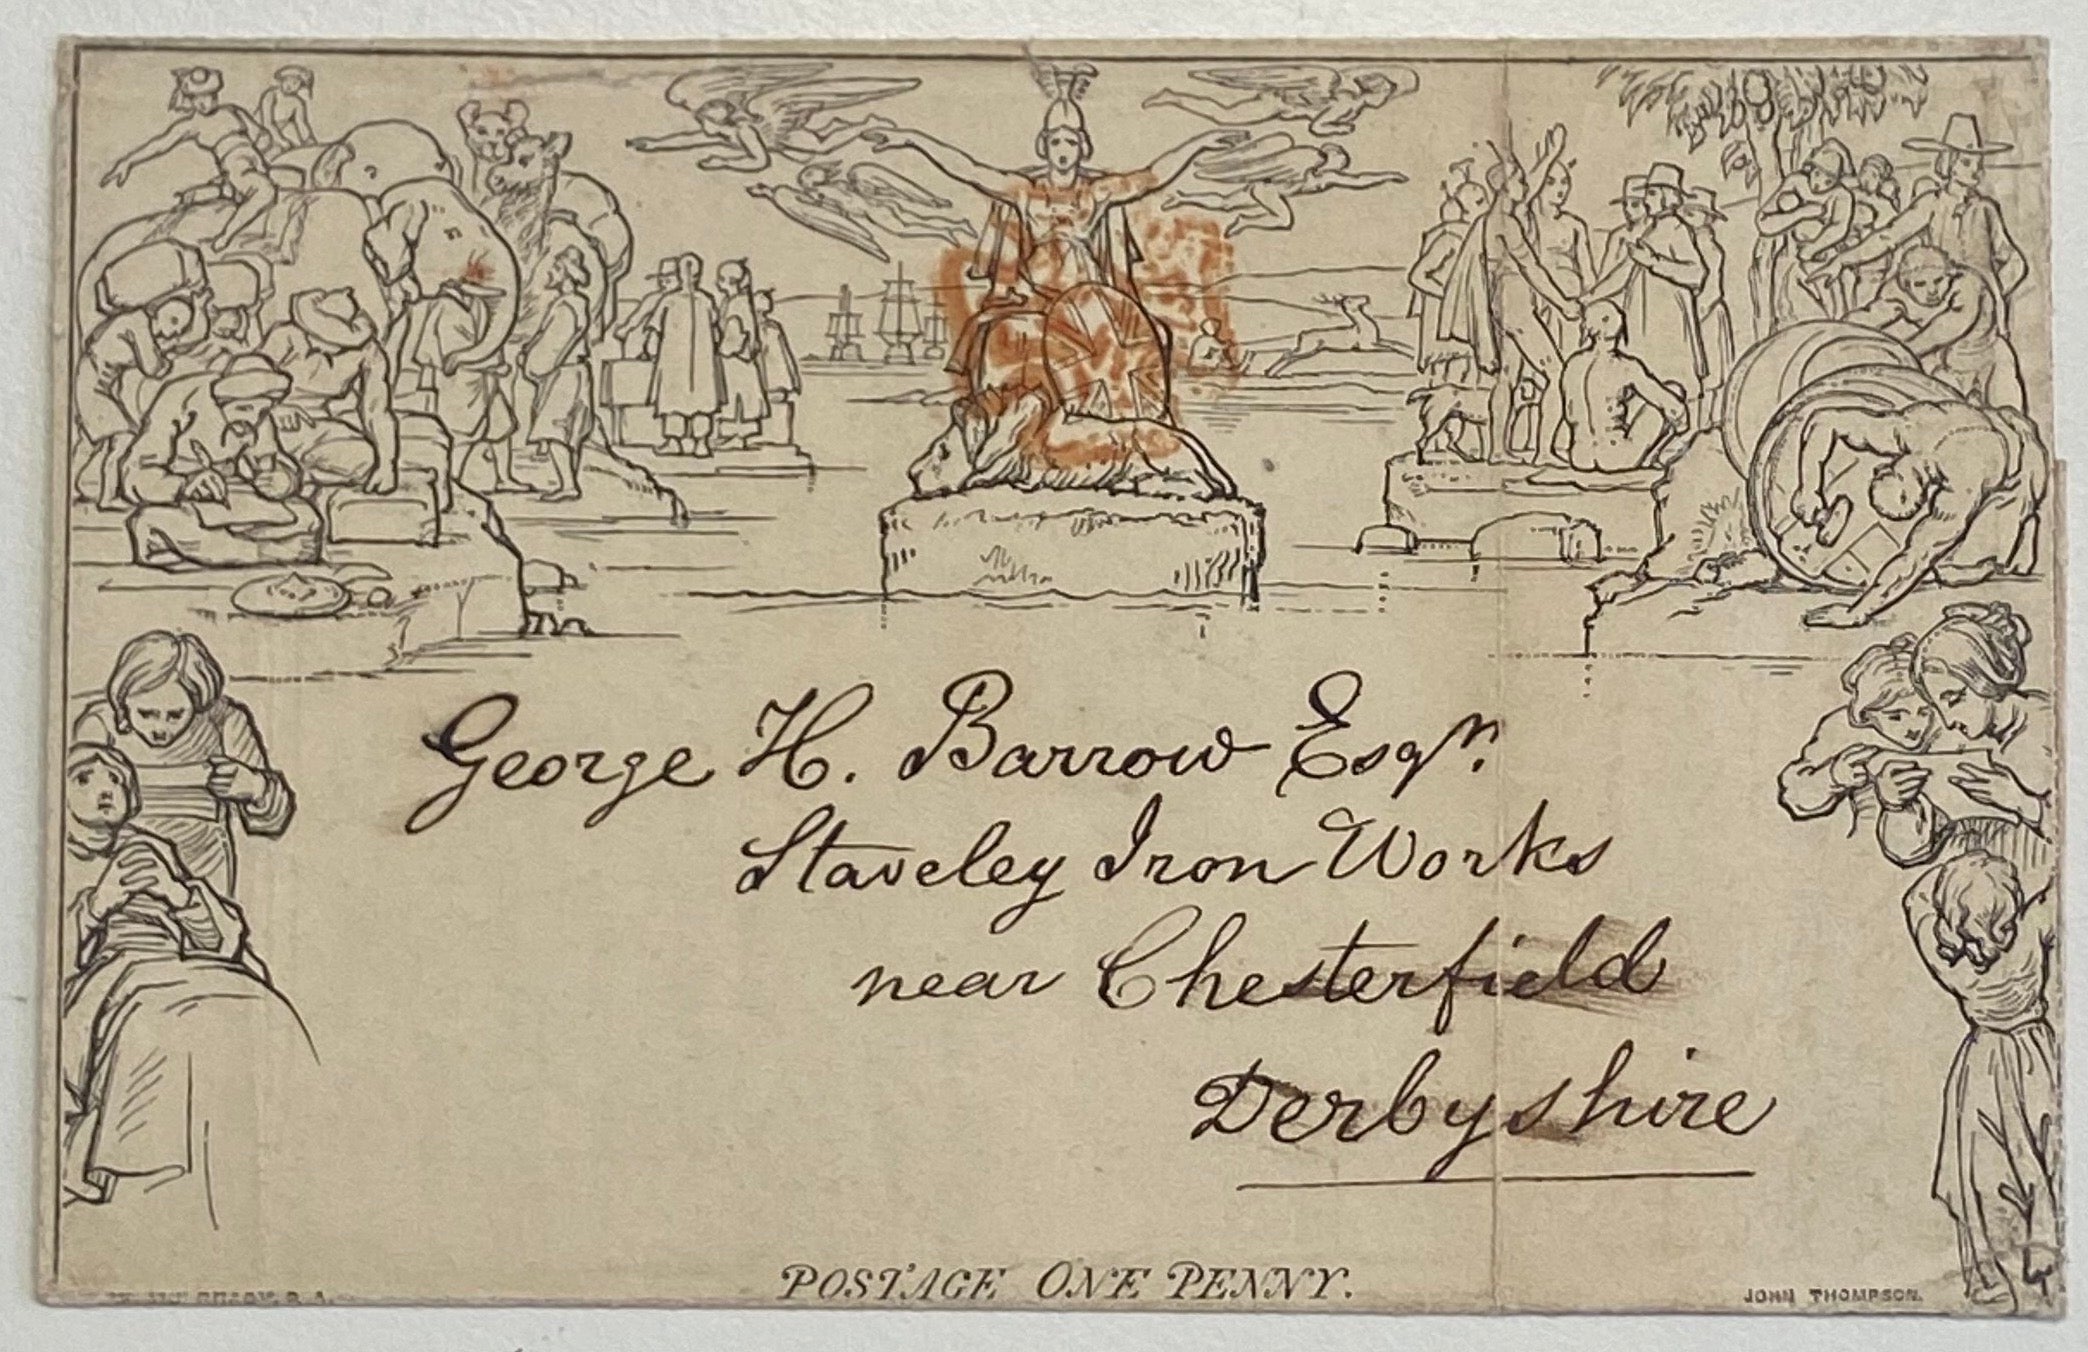 George H. Barrow Esqr.
Staveley Iron Works
near Chesterfield
Derbyshire
POSTAGE ONE PENNY.
R.A.
JOHN THOMPSON.